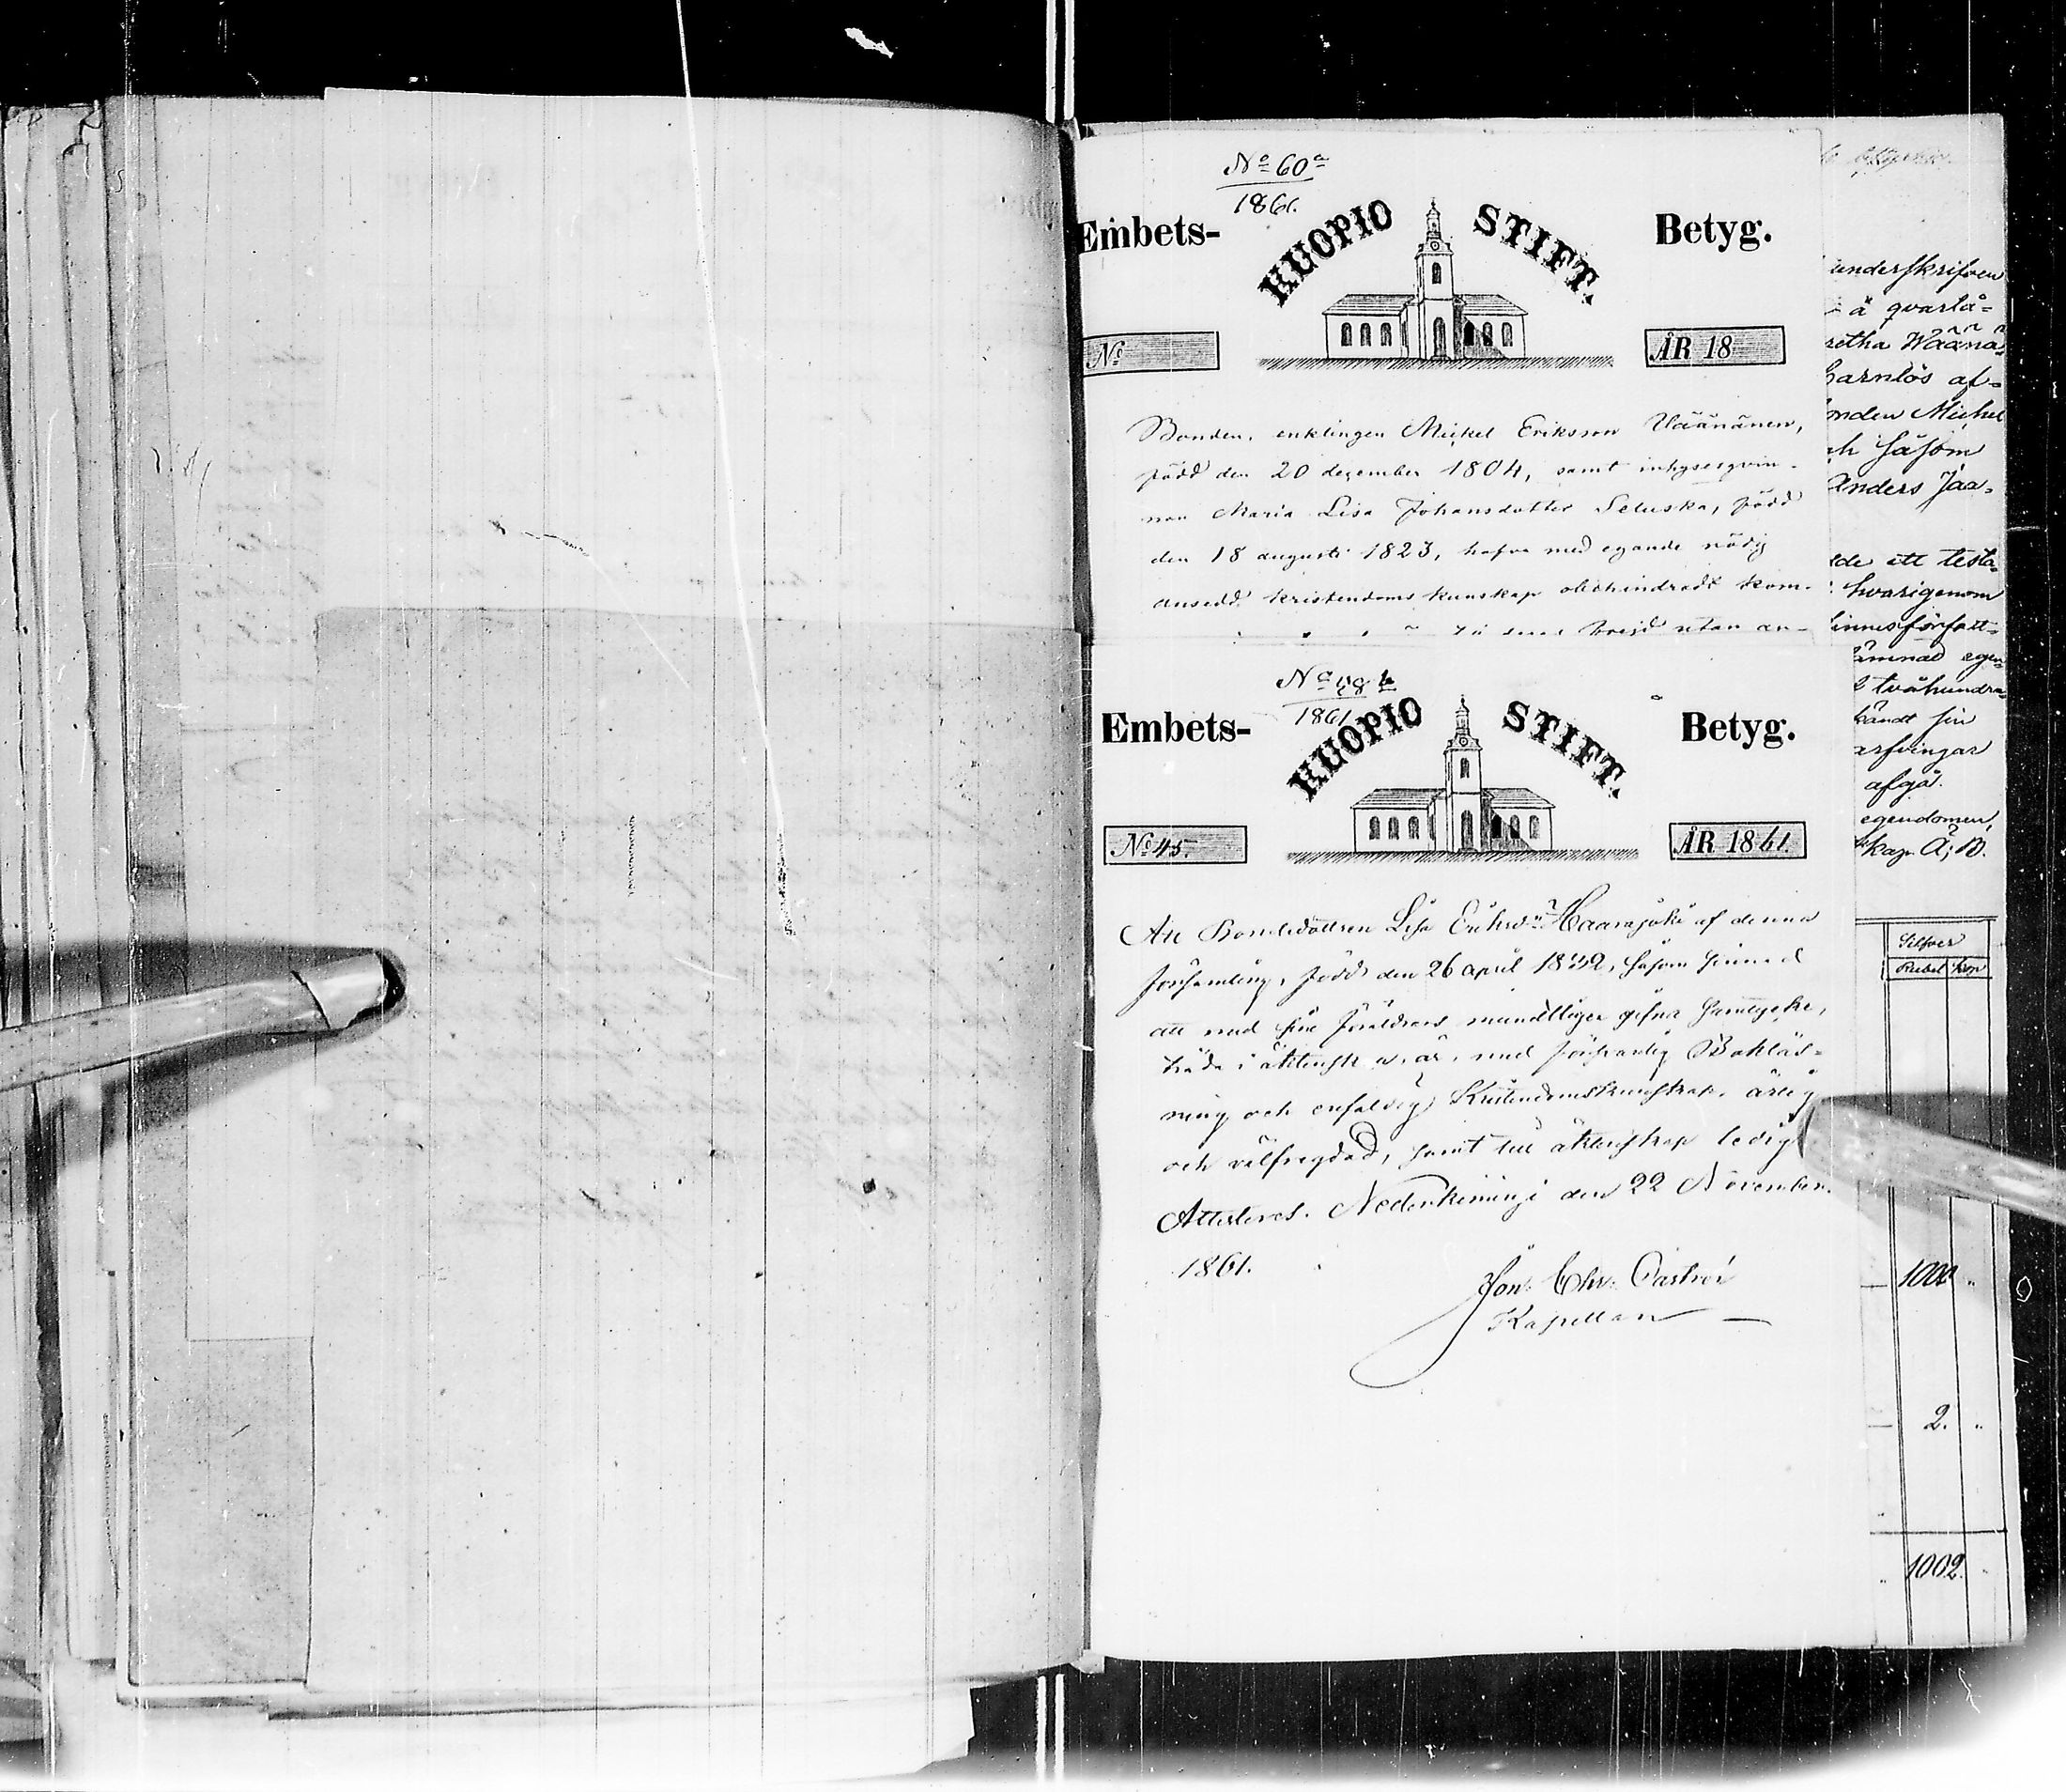 No 60a
1861.
Embets- KUOPIO STIFT. Betyg.
No ÅR 18
Bonden, enklingen Mickel Eriksson Väänänen,
född den 20 dezember 1804, samt inhysesqvin-
nan Maria Lisa Johansdotter Seluska, född
den 18 augusti 1823, hafva med egande nödig
ansedd kristendoms kunskap obehindradt kom-
frejd utan an-
No 48 b
1861
Embets- KUOPIO STIFT. Betyg.
No 45. ÅR 1861.
Att Bondedottren Lisa Eriksdr Haarajoki af denna
församling, född den 26 april 1832, såsom sinnad
att med sine föräldrars mundtligen gifna samtycke,
träda i äktensk. a, är, med försvarlig Bokläs-
ning och enfaldig Kristendomskunskap, ärlig
och välfregdad, samt till äktenskap ledig
Attesteras. Nederkiminge den 22 November
1861.
Jon. Chr. Castrén
Kapellan
underskrifven
å qvarlå-
retha Wäänä-
barnlös af-
onden Michel
såsom
Anders Jaa-
lde ett testa-
hvarigenom
sinnesförfatt-
ämnad egen-
tvåhundra-
kändt sin
arfvingar
afgå.
egendomen,
skap A; B.
Silfver
Rubel Kop
1000 "
2. "
1002. "